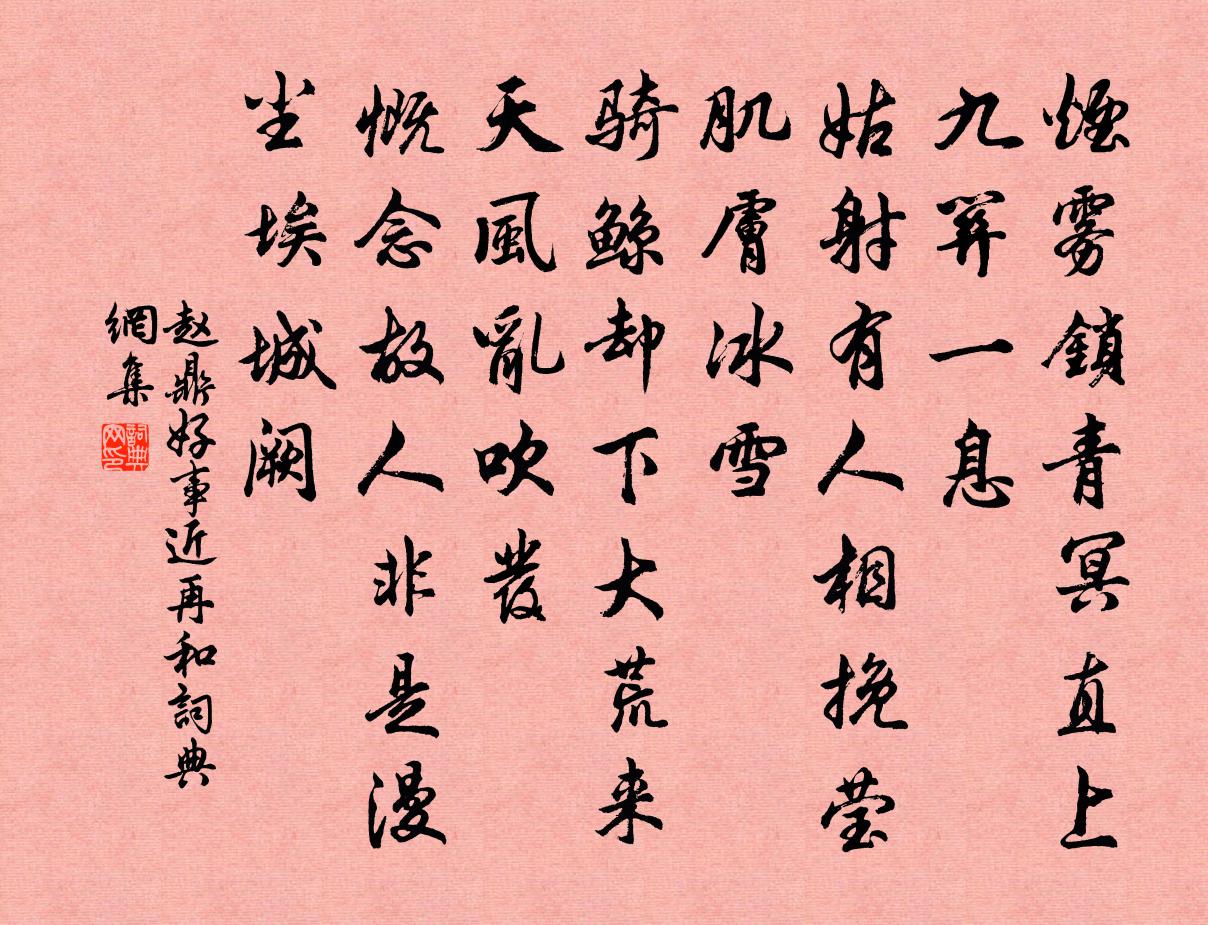 煙雾鎖青冥直上
九关一息
姑射有人相挽莹
肌膚冰雪
骑鲸却下大荒来
天風亂吹發
慨念故人非是漫
尘埃城阙
赵鼎好事近再和詞典
網集
詞典
网印